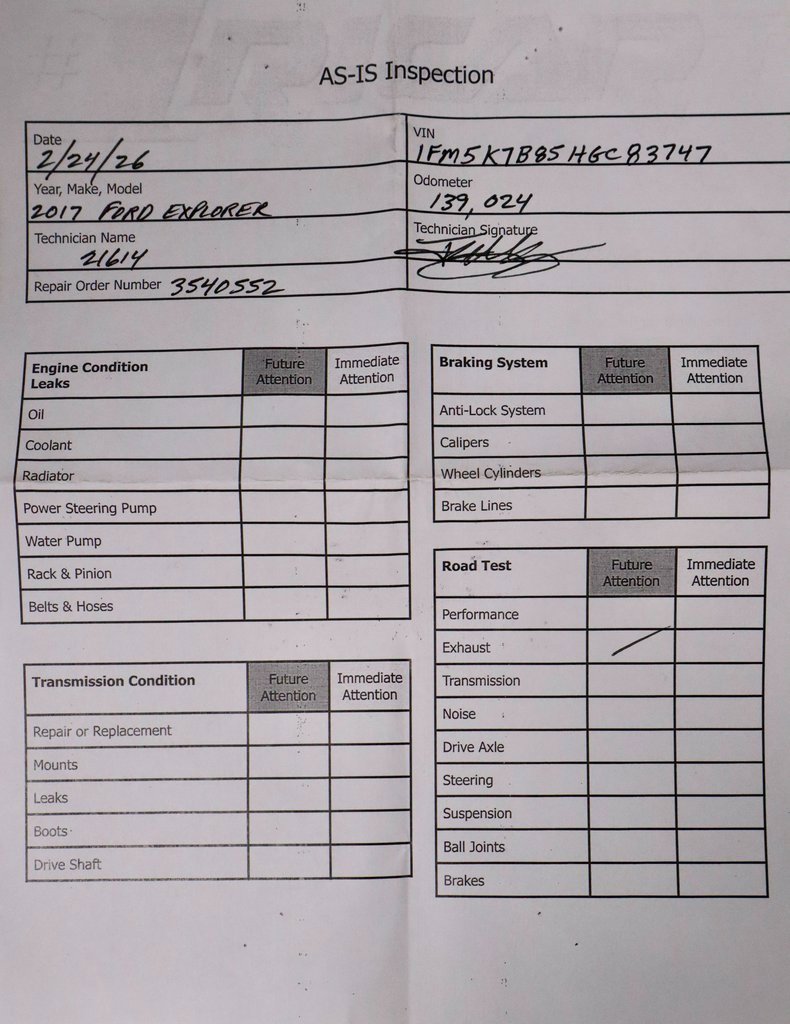 AS-IS Inspection
Date
2/24/26
VIN
1FM5K7B85HGC83747
Year, Make, Model
2017 FORD EXPLORER
Odometer
139,024
Technician Name
21614
Technician Signature
Repair Order Number 3540552
Engine Condition
Leaks
Future
Attention
Immediate
Attention
Oil
Coolant
Radiator
Power Steering Pump
Water Pump
Rack & Pinion
Belts & Hoses
Transmission Condition
Future
Attention
Immediate
Attention
Repair or Replacement
Mounts
Leaks
Boots
Drive Shaft
Braking System
Future
Attention
Immediate
Attention
Anti-Lock System
Calipers
Wheel Cylinders
Brake Lines
Road Test
Future
Attention
Immediate
Attention
Performance
Exhaust
Transmission
Noise
Drive Axle
Steering
Suspension
Ball Joints
Brakes